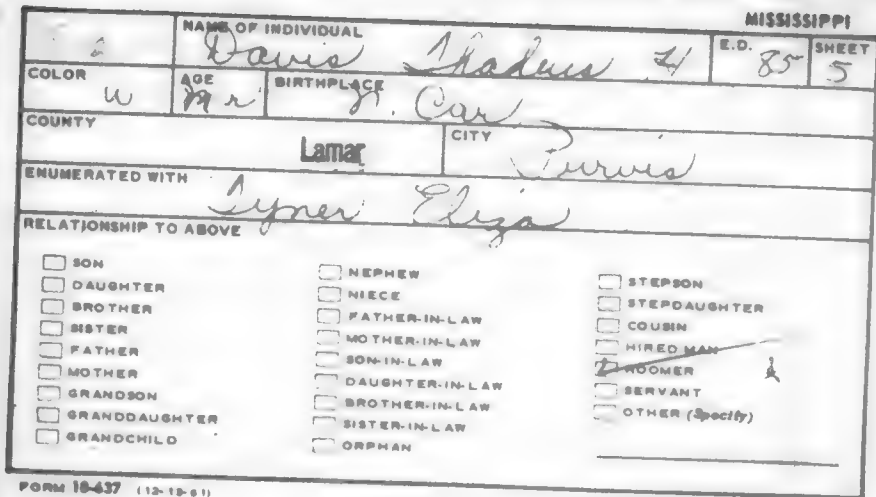 MISSISSIPPI
NAME OF INDIVIDUAL
Davis Thadeus H
E.D.
85
SHEET
5
COLOR
W
AGE
BIRTHPLACE
N. Car
COUNTY
Lamar
CITY
Purvis
ENUMERATED WITH
Tyner Eliza
RELATIONSHIP TO ABOVE
SON
DAUGHTER
BROTHER
SISTER
FATHER
MOTHER
GRANDSON
GRANDDAUGHTER
GRANDCHILD
NEPHEW
NIECE
FATHER-IN-LAW
MOTHER-IN-LAW
SON-IN-LAW
DAUGHTER-IN-LAW
BROTHER-IN-LAW
SISTER-IN-LAW
ORPHAN
STEPSON
STEPDAUGHTER
COUSIN
HIRED MAN
ROOMER
SERVANT
OTHER (Specify)
FORM 10-637 (12-19-61)